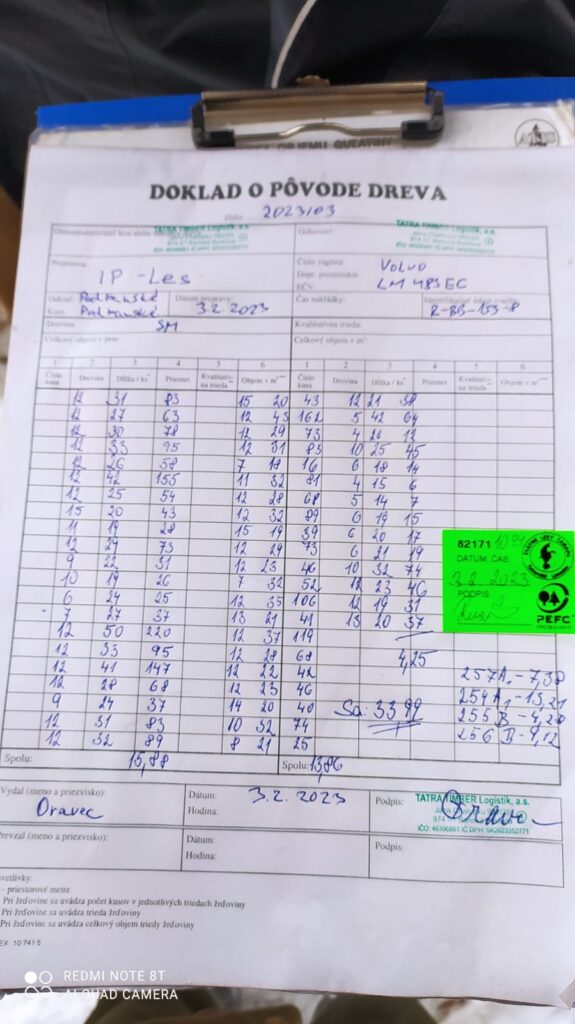 DOKLAD O PÔVODE DREVA
číslo 2023/03
TATRA TIMBER Logistik, a.s.
974 01 Banská Bystrica
TATRA TIMBER Logistik, a.s.
Odberateľ
Prepravca: IP - Les
Číslo vagónu: VOLVO
Dopr. prostriedok:
EČV: LM 483EC
Odkiaľ:
Kam:
Dátum prepravy: 3.2.2023
Čas nakládky:
R-BB-153-8
Drevina SM
Kvalitatívna trieda:
Celkový objem v prm
Celkový objem v m³:
1 2 3 4 5 6 1 2 3 4 5 6
Číslo kusa Drevina Dĺžka / ks Priemer Kvalitatív. na trieda Objem v m Číslo kusa Drevina Dĺžka / ks Priemer Kvalitatív. na trieda Objem v m
12 31 83 15 20 43 12 21 38
12 27 63 12 43 162 5 42 64
12 30 78 12 29 73 4 20 12
12 33 95 12 31 83 10 25 45
12 26 58 7 18 16 6 18 14
12 42 155 11 32 81 4 15 6
12 25 54 12 28 68 5 14 7
15 20 43 12 32 89 6 19 15
11 19 28 15 19 39 6 20 17
12 29 73 12 29 73 6 21 19
9 22 31 12 23 46 10 32 74
10 19 26 7 32 52 12 23 46
6 24 25 12 35 106 12 19 31
7 27 37 13 21 41 13 20 37
12 50 220 12 37 119
12 33 95 12 28 68 4,25
12 41 147 12 22 42 257A - 7,38
12 28 68 12 23 46 254A - 13,21
9 24 37 14 20 40 Sa: 33,99 255 B - 4,28
12 31 83 10 32 74 256 B - 9,12
12 32 89 8 21 25
Spolu: 15,88 Spolu: 13,86
82171
DÁTUM: ČAS
3.2.2023
PODPIS
PEFC
Vydal (meno a priezvisko):
Oravec
Dátum: 3.2.2023
Hodina:
Podpis:
TATRA TIMBER Logistik, a.s.
Prevzal (meno a priezvisko):
Dátum:
Hodina:
Podpis:
svetlivky:
- priestorové metre
Pri žrďovine sa uvádza počet kusov v jednotlivých triedach žrďoviny
Pri žrďovine sa uvádza trieda žrďoviny
Pri žrďovine sa uvádza celkový objem triedy žrďoviny
EX 10 741 5
REDMI NOTE 8T
AI QUAD CAMERA